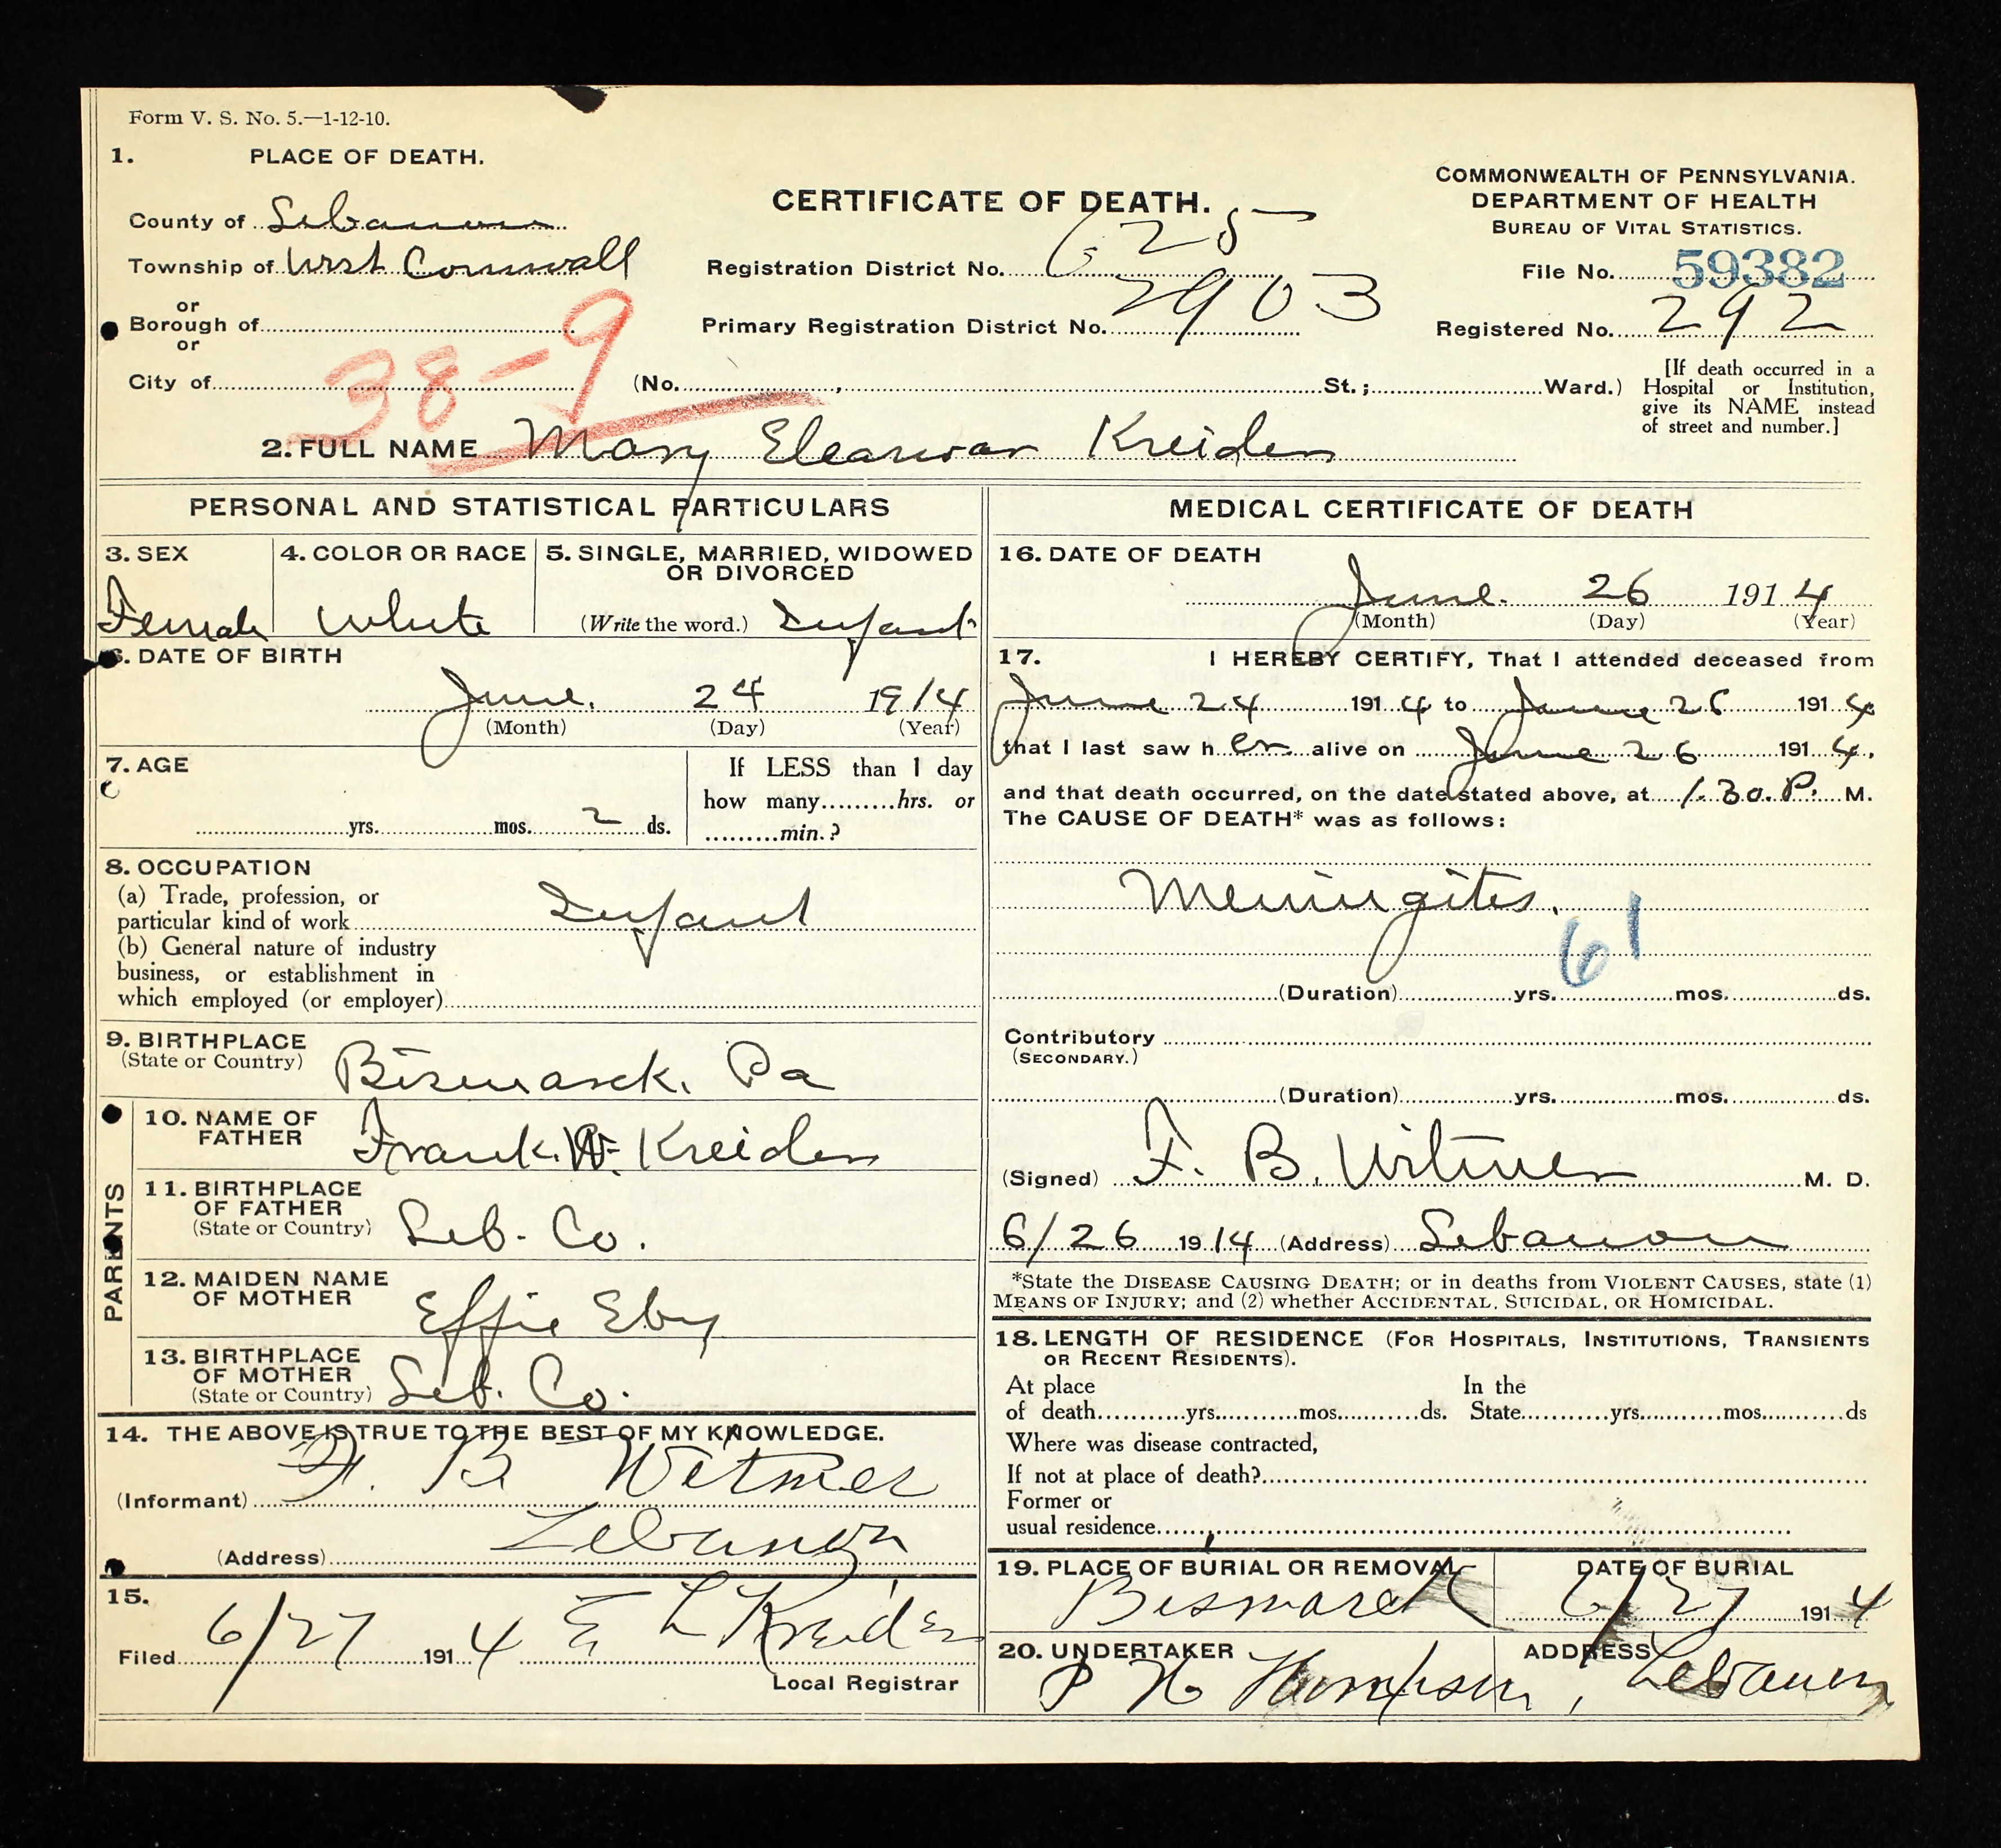 Form V. S. No. 5.—1-12-10.
1. PLACE OF DEATH.
County of Lebanon
Township of West Cornwall
or
Borough of
or
City of
38-9
CERTIFICATE OF DEATH.
Registration District No. 625
Primary Registration District No. 2903
(No. , St.; Ward.)
COMMONWEALTH OF PENNSYLVANIA.
DEPARTMENT OF HEALTH
BUREAU OF VITAL STATISTICS.
File No. 59382
Registered No. 292
[If death occurred in a
Hospital or Institution,
give its NAME instead
of street and number.]
2. FULL NAME Mary Kreider
PERSONAL AND STATISTICAL PARTICULARS
3. SEX
Female
4. COLOR OR RACE
White
5. SINGLE, MARRIED, WIDOWED
OR DIVORCED
(Write the word.) Infant
6. DATE OF BIRTH
June. 24 1914
(Month) (Day) (Year)
7. AGE
yrs. mos. 2 ds.
If LESS than 1 day
how many hrs. or
min.?
8. OCCUPATION
(a) Trade, profession, or
particular kind of work Infant
(b) General nature of industry
business, or establishment in
which employed (or employer)
9. BIRTHPLACE
(State or Country) Bismarck. Pa
PARENTS
10. NAME OF
FATHER Frank. Kreider
11. BIRTHPLACE
OF FATHER
(State or Country) Leb. Co.
12. MAIDEN NAME
OF MOTHER Effie Eby
13. BIRTHPLACE
OF MOTHER
(State or Country) Leb. Co.
14. THE ABOVE IS TRUE TO THE BEST OF MY KNOWLEDGE.
(Informant) F. B Witmer
(Address) Lebanon
15.
Filed 6/27 1914 E L Kreider
Local Registrar
MEDICAL CERTIFICATE OF DEATH
16. DATE OF DEATH
June. 26 1914
(Month) (Day) (Year)
17. I HEREBY CERTIFY, That I attended deceased from
June 24 1914 to June 26 1914
that I last saw her alive on June 26 1914.
and that death occurred, on the date stated above, at 1.30. P. M.
The CAUSE OF DEATH* was as follows:
Meningites.
61
(Duration) yrs. mos. ds.
Contributory
(SECONDARY.)
(Duration) yrs. mos. ds.
(Signed) F. B. Witmer M. D.
6/26 1914 (Address) Lebanon
*State the DISEASE CAUSING DEATH; or in deaths from VIOLENT CAUSES, state (1)
MEANS OF INJURY; and (2) whether ACCIDENTAL, SUICIDAL, OR HOMICIDAL.
18. LENGTH OF RESIDENCE (FOR HOSPITALS, INSTITUTIONS, TRANSIENTS
OR RECENT RESIDENTS).
At place In the
of death yrs. mos. ds. State yrs. mos. ds
Where was disease contracted,
If not at place of death?
Former or
usual residence
19. PLACE OF BURIAL OR REMOVAL
Bismarck
DATE OF BURIAL
6/27 1914
20. UNDERTAKER
P H Thompson,
ADDRESS
Lebanon